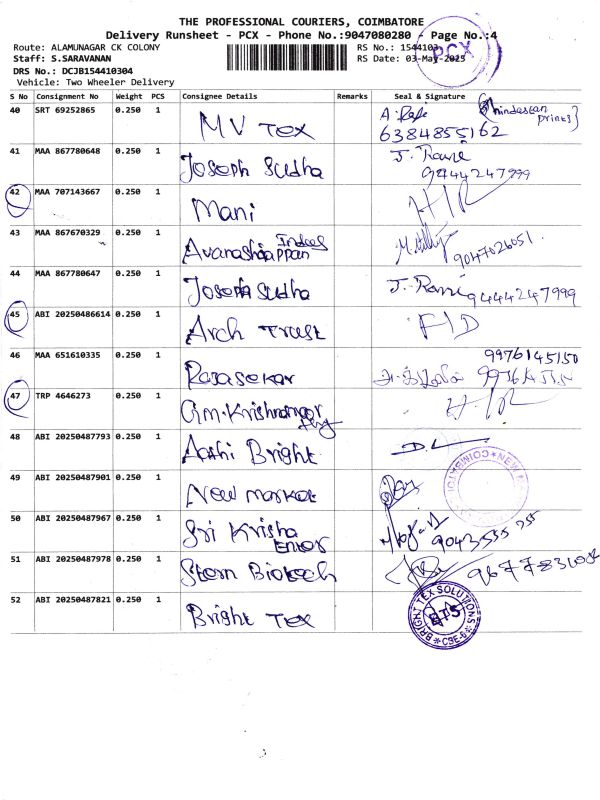 THE PROFESSIONAL COURIERS, COIMBATORE
Delivery Runsheet - PCX - Phone No.:9047080280 - Page No.:4
Route: ALAMUNAGAR CK COLONY
RS No.: 1544103
PCX
Staff: S.SARAVANAN
RS Date: 03-May-2025
DRS No.: DCJB154410304
Vehicle: Two Wheeler Delivery
S No Consignment No Weight PCS Consignee Details Remarks Seal & Signature
40 SRT 69252865 0.250 1 MV Tex
6384855162
41 MAA 867780648 0.250 1 Joseph Sudha J. Rani
9444247999
42 MAA 707143667 0.250 1 Mani H/R
43 MAA 867670329 0.250 1
9047026051
44 MAA 867780647 0.250 1 Joseph Sudha J. Rani 9444247999
45 ABI 20250486614 0.250 1 Arch Trust F/D
46 MAA 651610335 0.250 1 Rajasekar 9976145150
47 TRP 4646273 0.250 1 H/R
48 ABI 20250487793 0.250 1 Aathi Bright D.L
49 ABI 20250487901 0.250 1 New Market
50 ABI 20250487967 0.250 1 Sri Krisha
51 ABI 20250487978 0.250 1 Stern Biotech
52 ABI 20250487821 0.250 1 Bright Tex
BRIGHT TEX SOLUTIONS
BTS
CBE-6